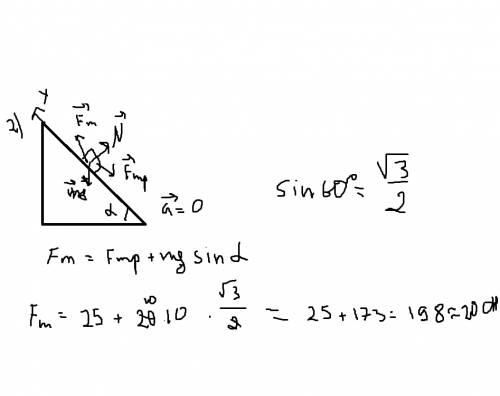 2)
Y
F⃗m
N⃗
F⃗mp
m⃗g
α
a⃗ = 0
sin60° = √3/2
Fm = Fmp + mg sinα
Fm = 25 + 20·10 · √3/2 = 25 + 173 = 198 ≈ 200H